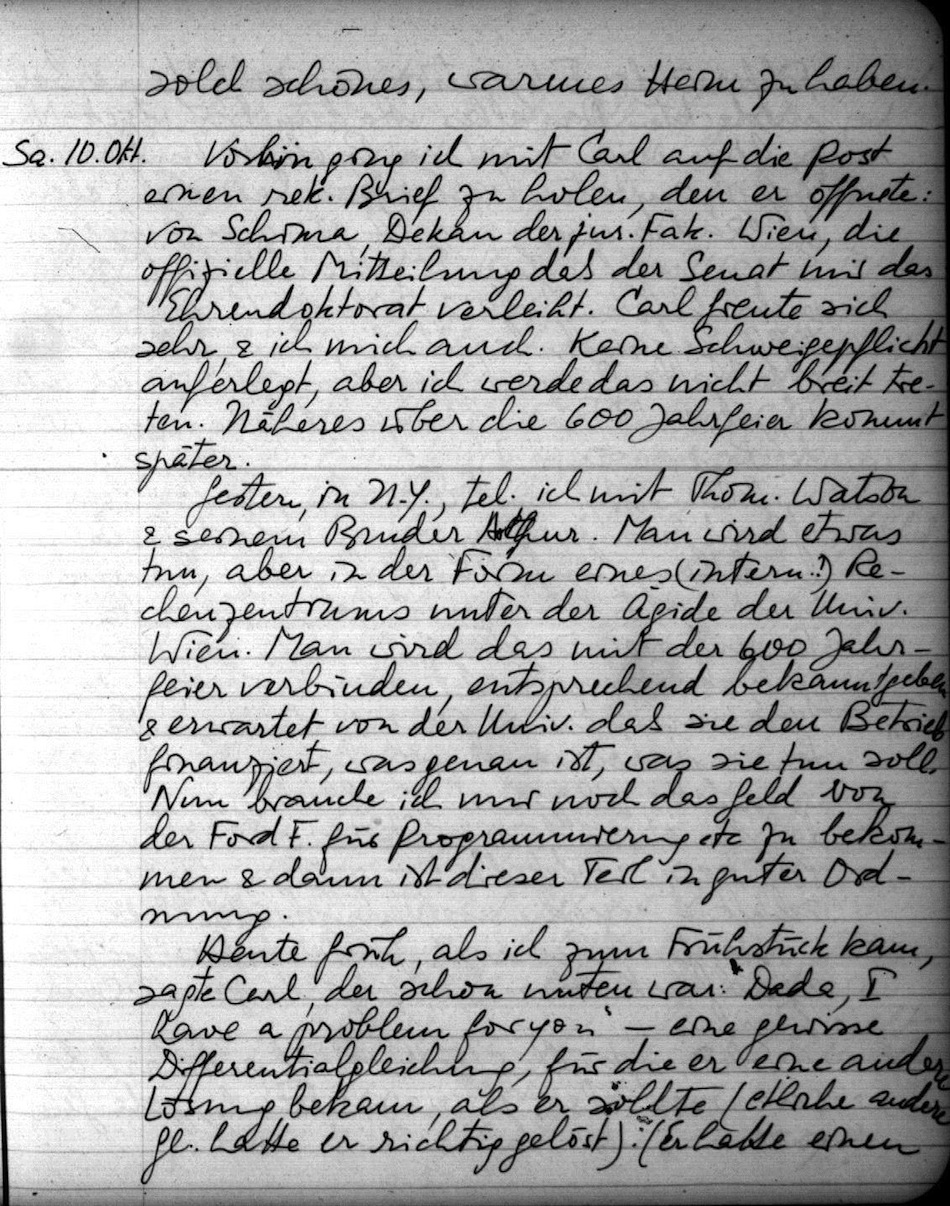 solch schönes, warmes Heim zu haben.
Sa. 10. Okt. Vorhin ging ich mit Carl auf die Post
einen rek. Brief zu holen, den er öffnete:
von Schima, Dekan der jur. Fak. Wien, die
offizielle Mitteilung dass der Senat mir das
Ehrendoktorat verleiht. Carl freute sich
sehr, & ich mich auch. Keine Schweigepflicht
auferlegt, aber ich werde das nicht breit tre-
ten. Näheres über die 600 Jahrfeier kommt
später.
Gestern, in N.Y., tel. ich mit Thom. Watson
& seinem Bruder Arthur. Man wird etwas
tun, aber in der Form eines (intern.!) Re-
chenzentrums unter der Ägide der Univ.
Wien. Man wird das mit der 600 Jahr-
feier verbinden, entsprechend bekanntgeben
& erwartet von der Univ. dass sie den Betrieb
finanziert, was genau ist, was sie tun soll.
Nun brauche ich nur noch das Geld von
der Ford F. für Programmierung etc zu bekom-
men & dann ist dieser Teil in guter Ord-
nung.
Heute früh, als ich zum Frühstück kam,
sagte Carl, der schon unten war: "Dada, I
have a problem for you" – eine gewisse
Differentialgleichung, für die er eine andere
Lösung bekam, als er sollte (etliche andere
Gl. hatte er richtig gelöst). (Er hatte einen